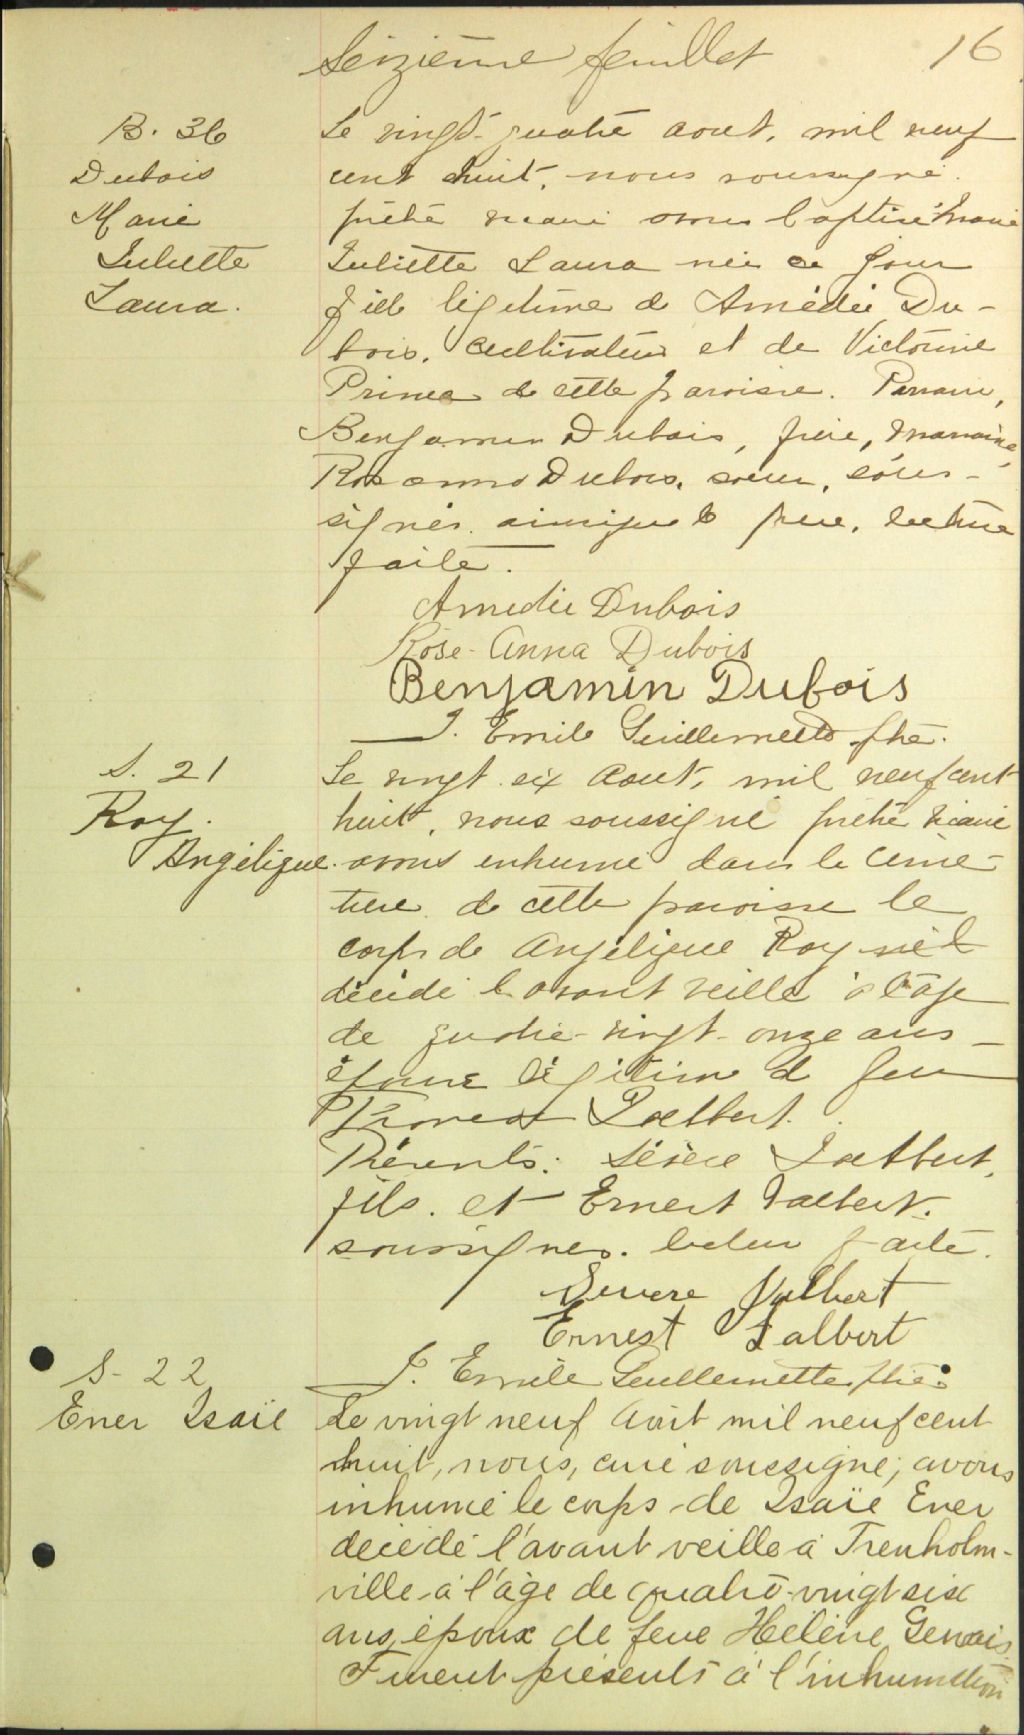 Seizième feuillet 16
B. 36
Dubois
Marie
Juliette
Laura.
Le vingt-quatre aout, mil neuf
cent huit, nous soussigné
prêtre vicaire avons baptisé Marie
Juliette Laura née ce jour
fille légitime de Amédée Du-
bois, cultivateur et de Victorine
Prince de cette paroisse. Parrain,
Benjamin Dubois, frère, marraine,
Rose anna Dubois, soeur, sous-
signés ainsi que le père, lecture
faite.
Amedée Dubois
Rose-Anna Dubois
Benjamin Dubois
J. Emile Guillemette ptre.
S. 21
Roy.
Angélique.
Le vingt six Aout, mil neuf cent
huit, nous soussigné prêtre vicaire
avons inhumé dans le cime-
tière de cette paroisse le
corps de Angélique Roy
décédé l'avant veille à l'âge
de quatre-vingt-onze ans
épouse légitime de feu
Thomas Talbert.
Présents: Sévère Talbert,
fils. et Ernest Talbert.
soussignés. lecture faite.
Severe Talbert
Ernest Talbert
J. Emile Guillemette ptre
S- 22
Ener Isaïe
Le vingt neuf Août mil neuf cent
huit, nous, curé soussigné, avons
inhumé le corps de Isaïe Ener
décédé l'avant veille à Trenholm-
ville à l'âge de quatre-vingt six
ans, époux de feue Hélène Gervais.
Furent présents à l'inhumation